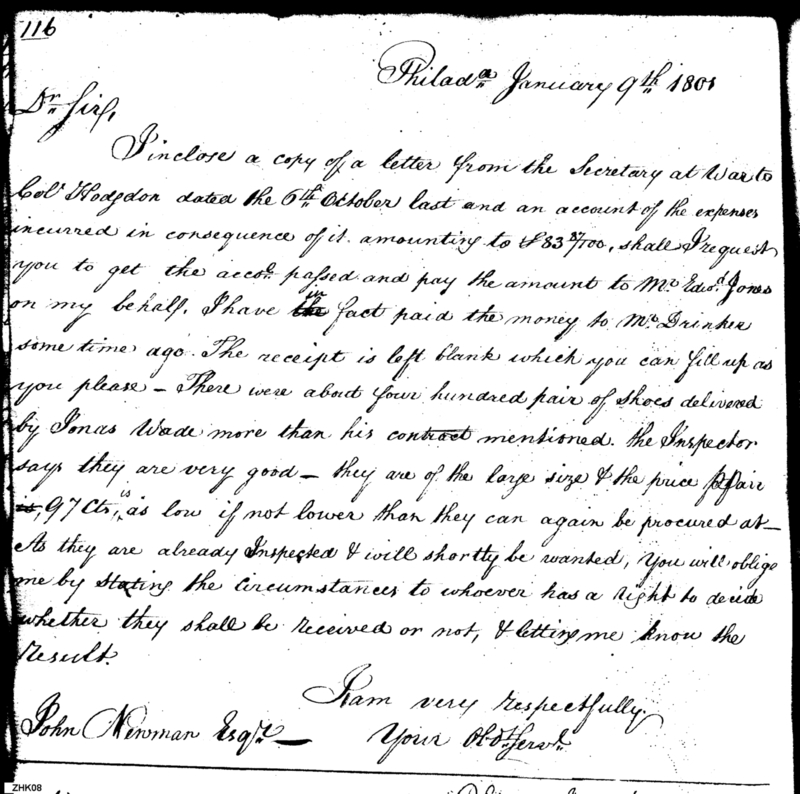 116
Philada January 9th 1801
Dr Sir,
I inclose a copy of a letter from the Secretary at War to
Colo Hodgdon dated the 6th October last and an account of the expenses
incurred in consequence of it amounting to $33 37/100, shall I request
you to get the accot passed and pay the amount to Mr Edwd Jones
on my behalf. I have in fact paid the money to Mr Drinker
some time ago. The receipt is left blank which you can fill up as
you please – There were about four hundred pair of shoes delivered
by Jonas Wade more than his contract mentioned. the Inspector
says they are very good – they are of the large size & the price pair
is, 97 Cts, is as low if not lower than they can again be procured at –
As they are already Inspected & will shortly be wanted, You will oblige
me by stating the circumstances to whoever has a right to decide
whether they shall be received or not, & letting me know the
result.
I am very respectfully.
John Newman Esqre – Your Obdt Servt
ZHK08